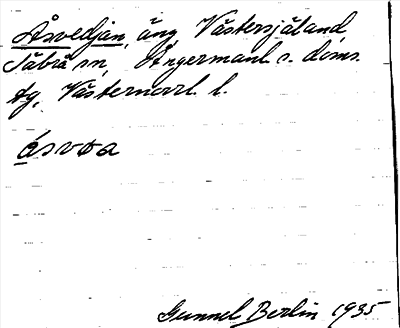 Åsvedjan, äng Västersjäland,
Tåbrå sn, Ångermanl. s. doms.
tg, Västernorrl. l.
åsvea
Gunnel Berlin 1935